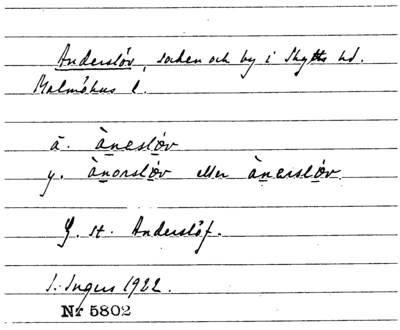 Anderslöv, socken och by i Skytts hd.
Malmöhus l.
ä. àneslöv
y. ànorslöv eller ànerslöv
G. st. Anderslöf.
I. Ingers 1922.
Nr 5802